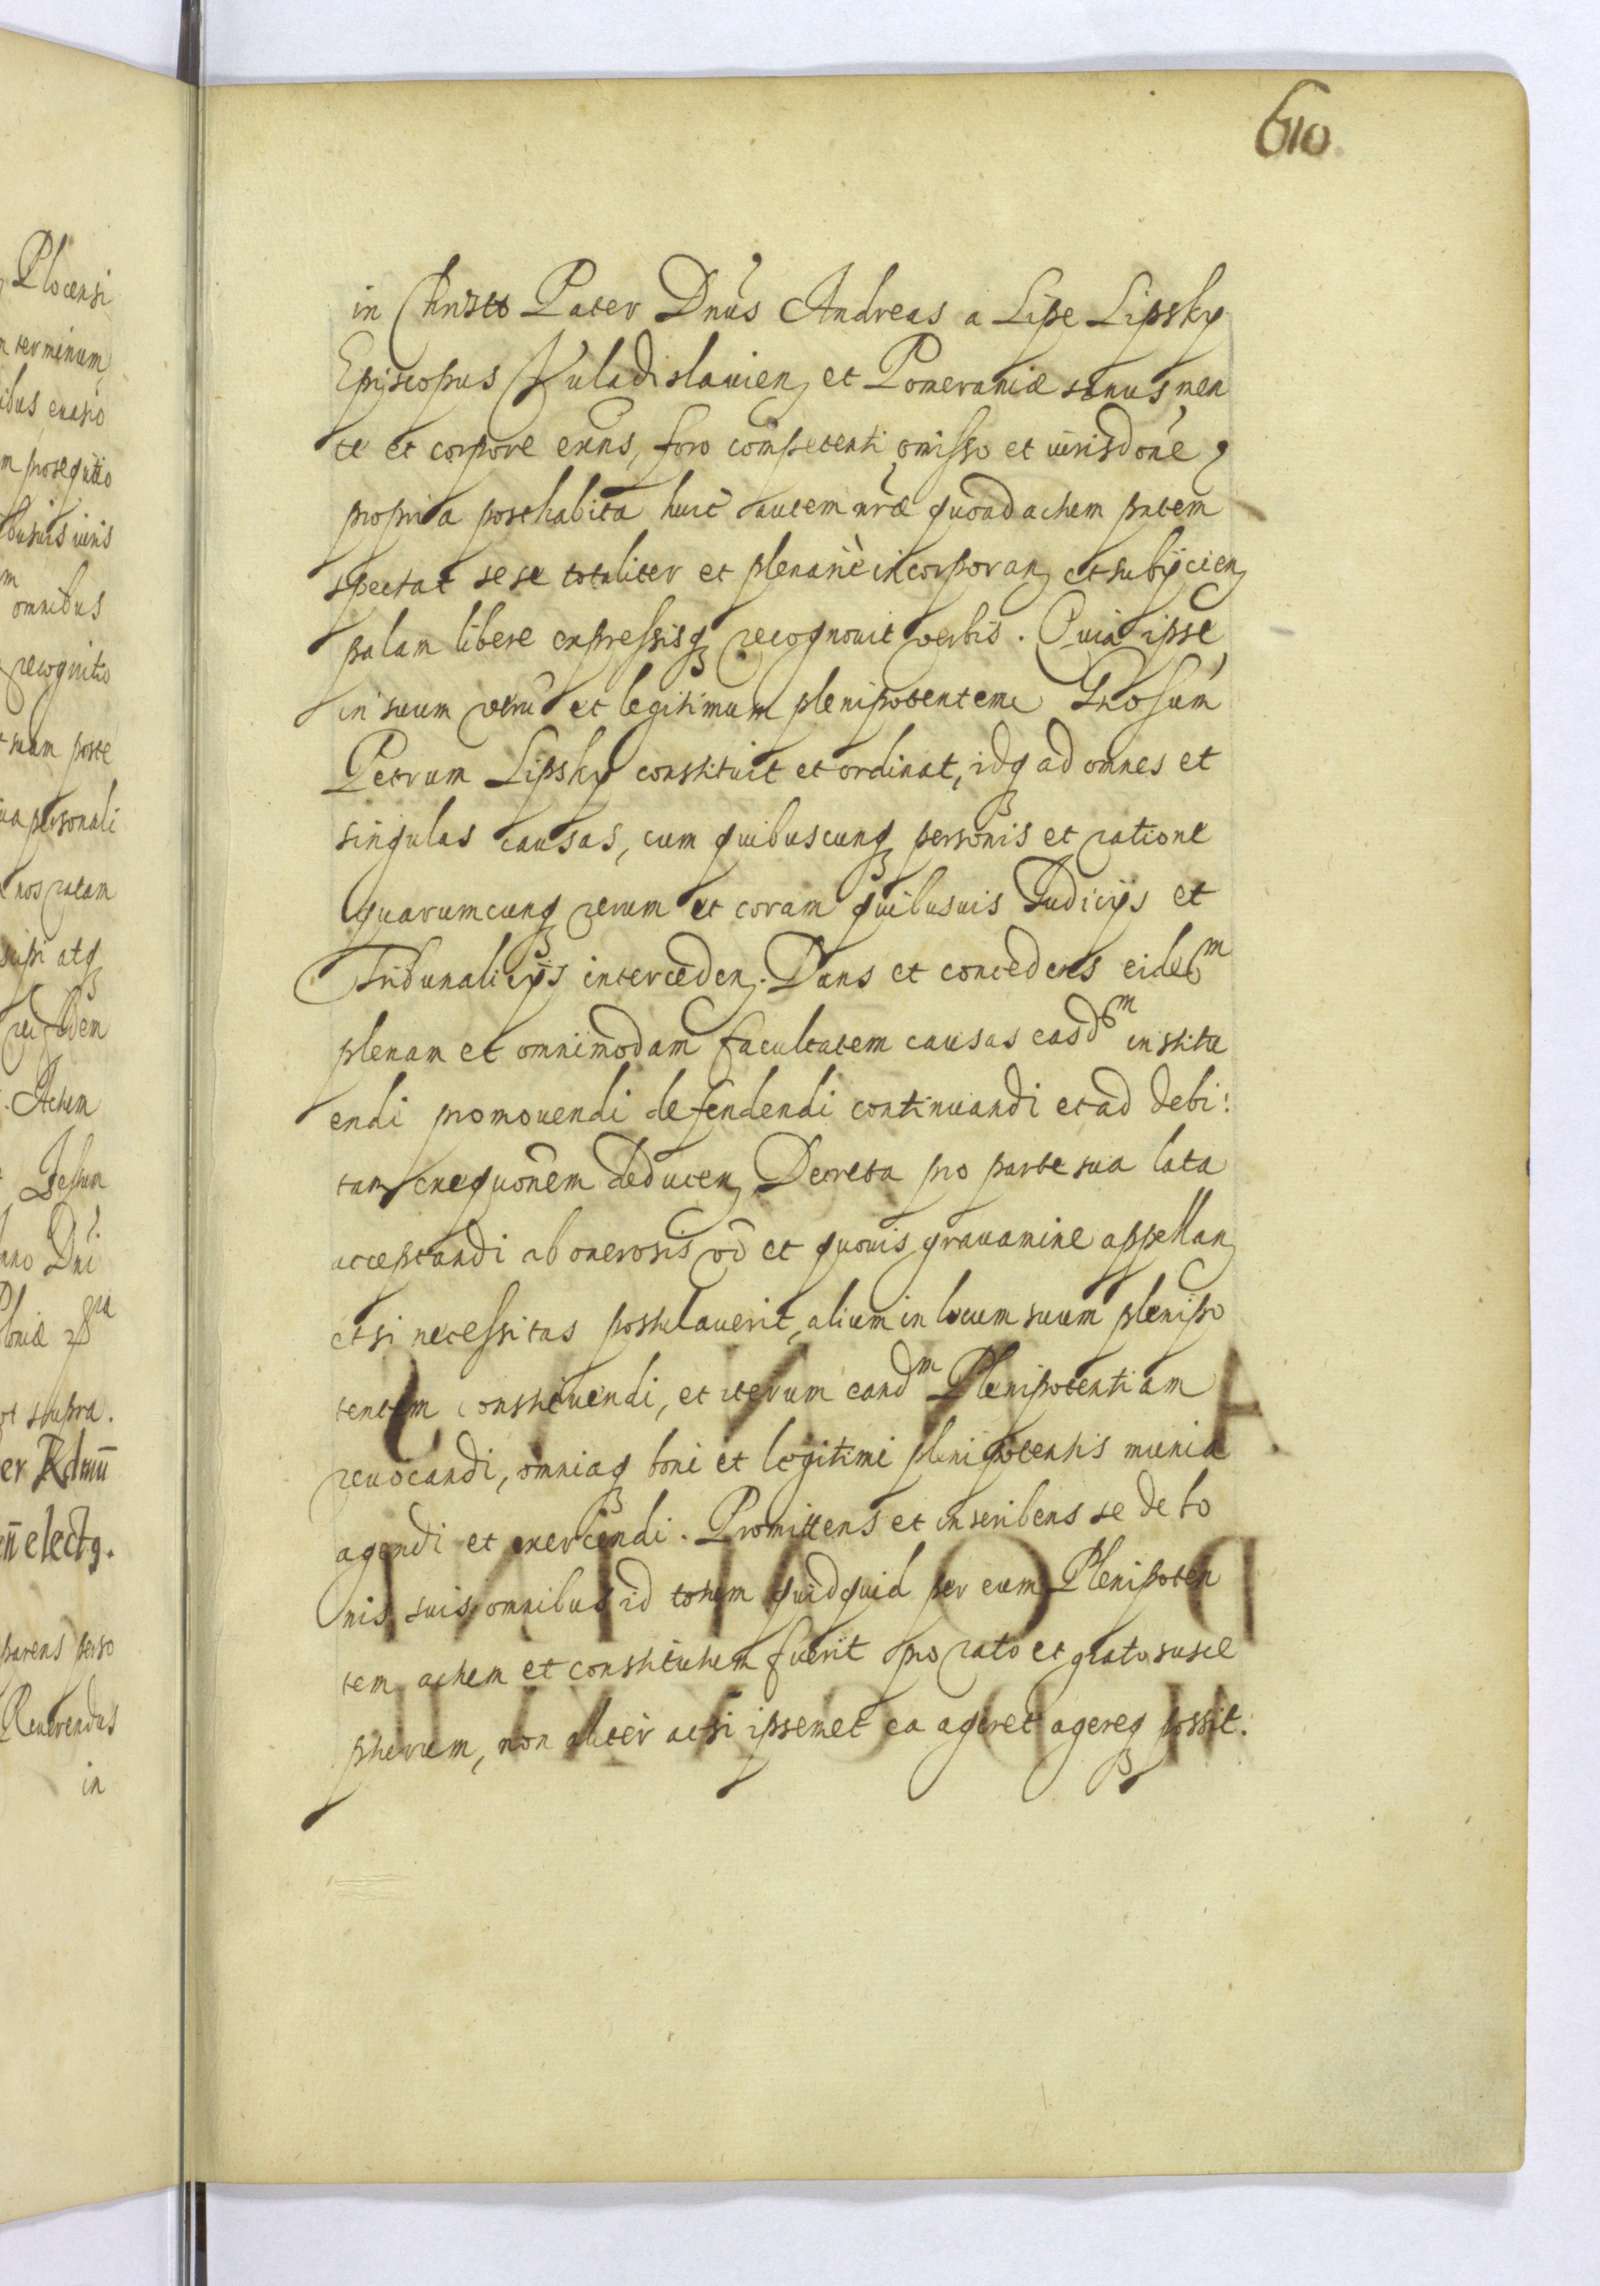 610
in Christo Pater Dnus Andreas a Lipe Lipsky
Episcopus Vuladislauien et Pomeraniæ sanus men
te et corpore exñs, foro competenti omisso et iurisdone
propria posthabita huic autem nræ quoad actum pntem
spectat sese totaliter et plenariè incorporan et subijcien
palam libere expressisq recognouit verbis. Quia ipse
in suum verũ et legitimum plenipotentem Gnosum
Petrum Lipsky constituit et ordinat, idq ad omnes et
singulas causas, cum quibuscunq personis et ratione
quarumcunq rerum et coram quibusuis Judicijs et
Tribunalicijs interceden. Dans et concedens eidem
plenam et omnimodam facultatem causas easdm institu
endi promouendi defendendi continuandi et ad debi:
tam exequonem deducen Decreta pro parte sua lata
acceptandi ab onerosis võ et quouis grauamine appellan
et si necessitas postulauerit, alium in locum suum plenipo
tentem constituendi, et iterum eandm Plenipotentiam
reuocandi, omniaq boni et legitimi plenipotentis munia
agendi et exercendi. Promittens et inscribens se de bo
nis suis omnibus id totum quidquid per eum Plenipoten
tem actum et constitutum fuerit pro rato et grato susce
pturum, non aliter acsi ipsemet ea ageret agereq possit.
Plocensi
terminum
omnibus
recognitio
suam poste
personali
nos ratam
atq
Actum
Dni
vt supra.
electq.
parens perso
Reuerendus
in